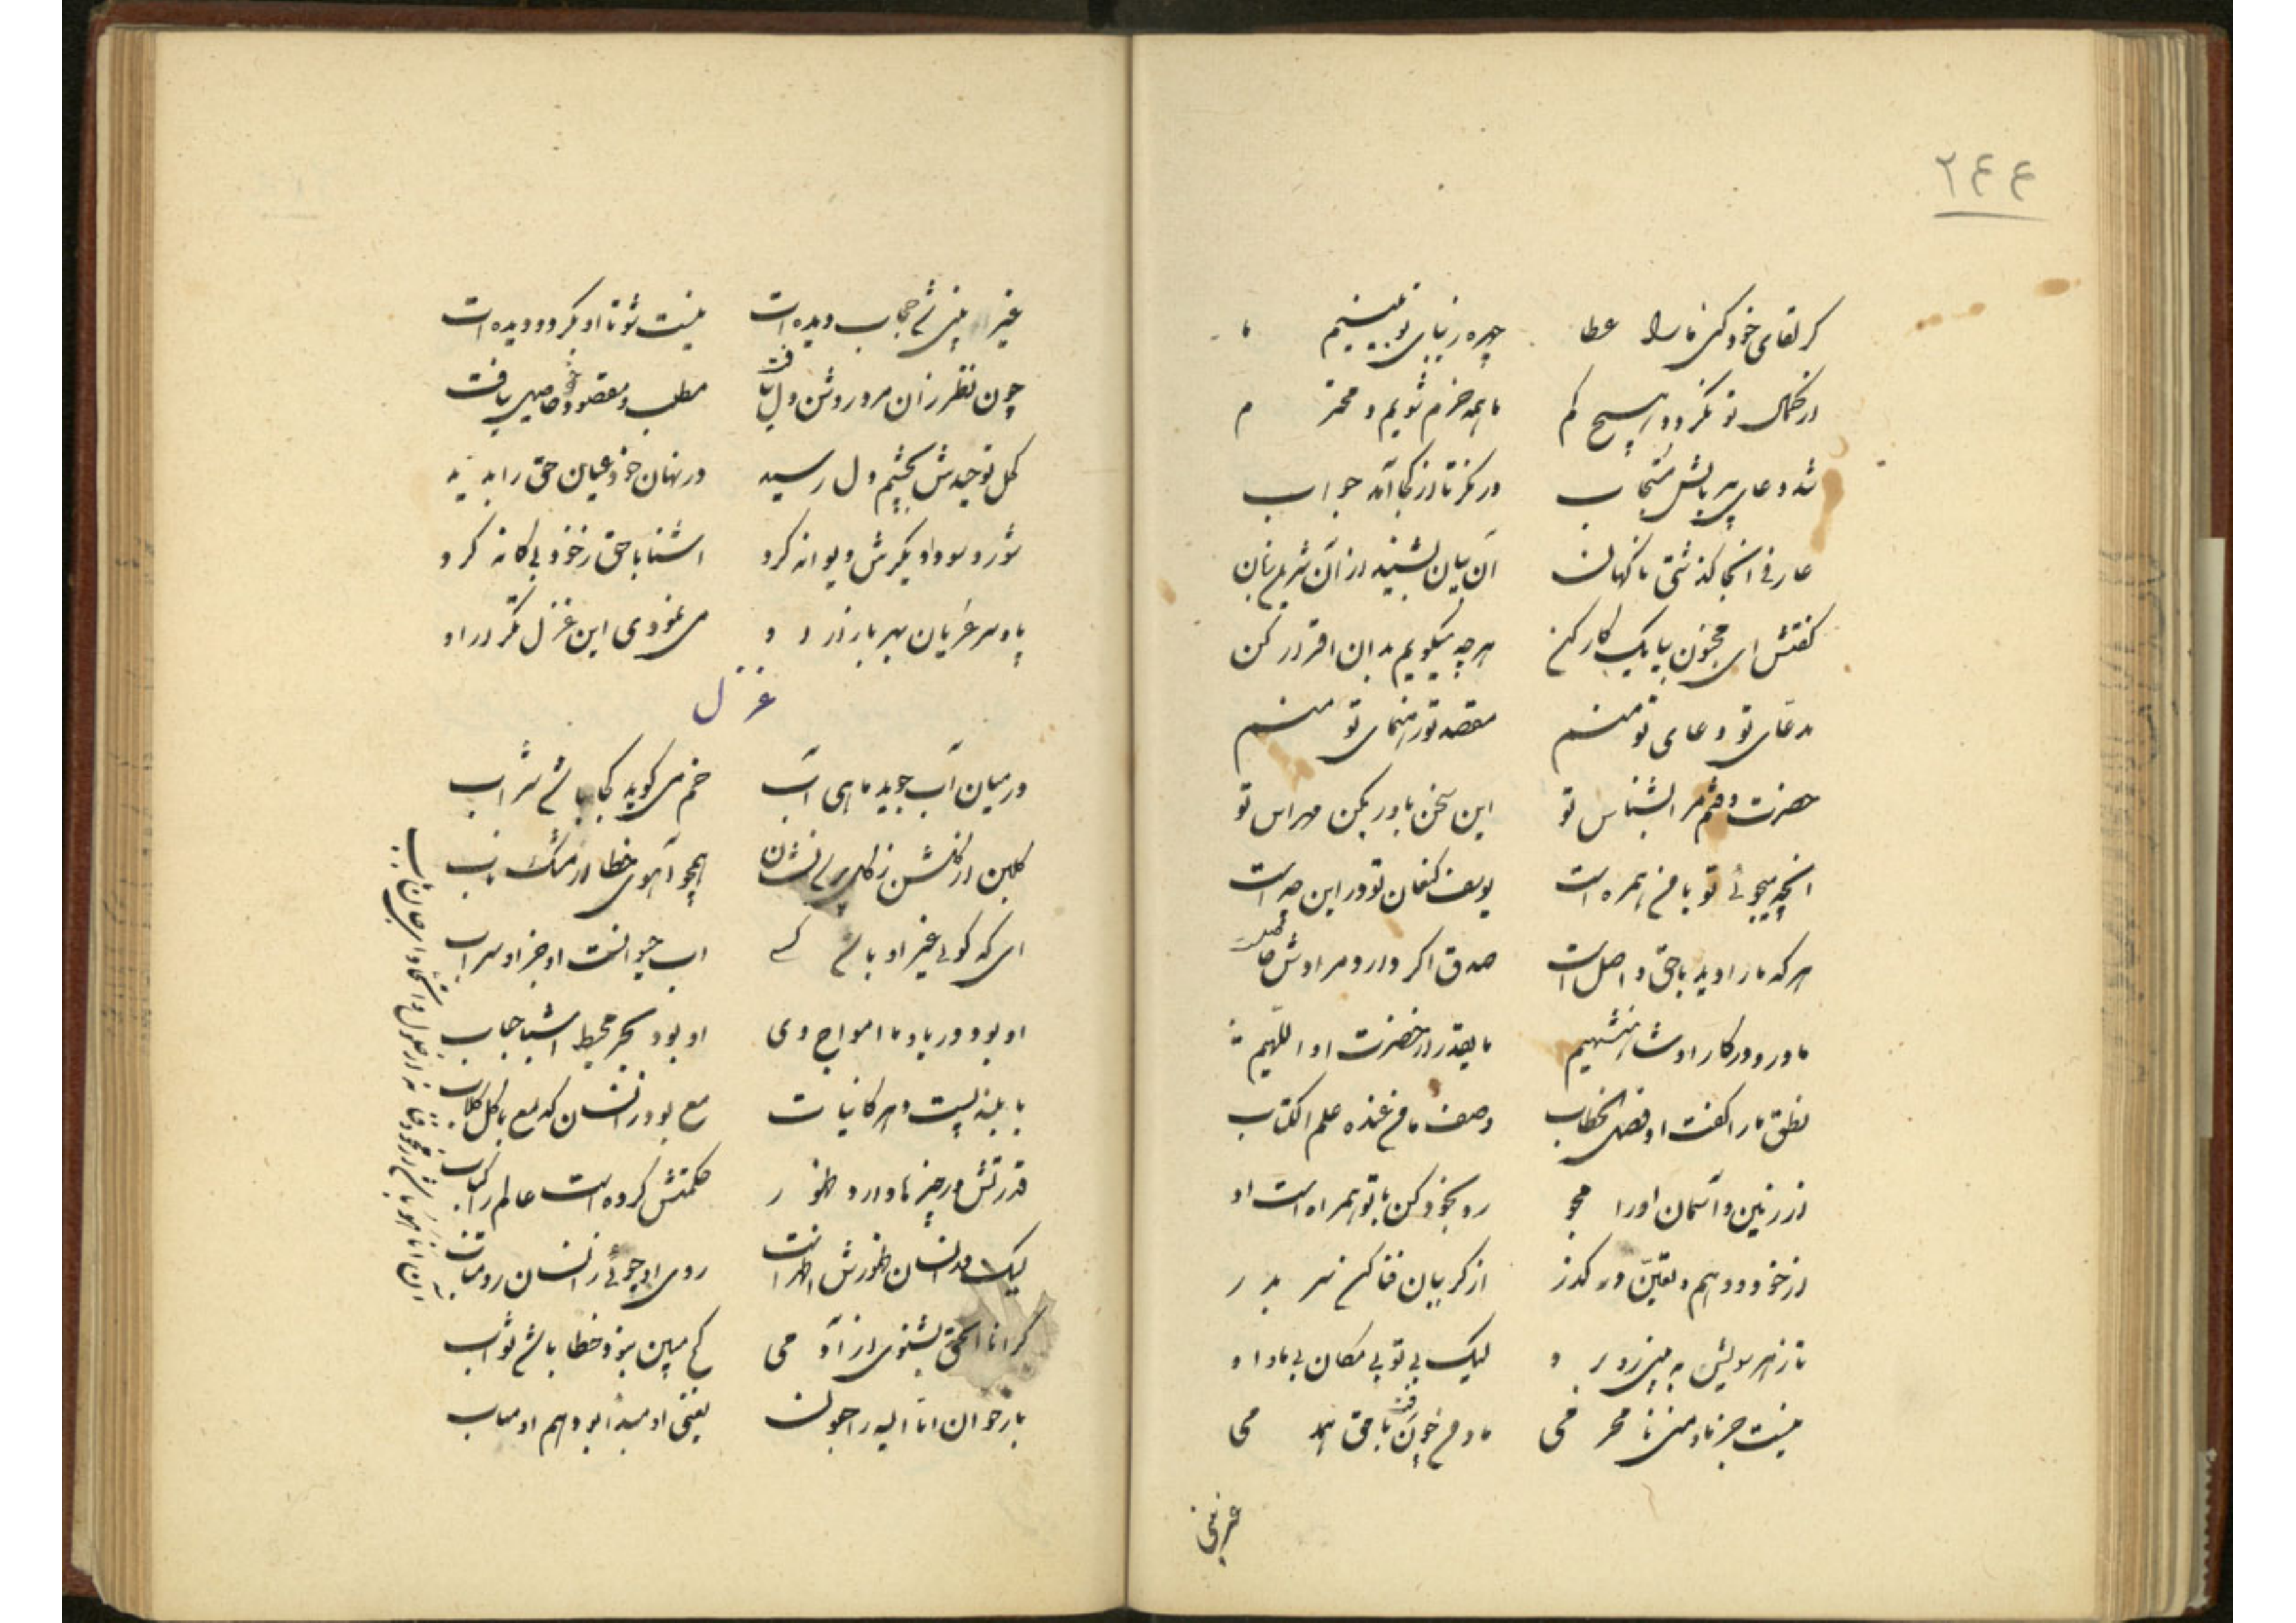 ۲۴۴
کر لقای خود کنی ما را عطا چهره زیبای تو بینیم ما
از کمال تو نکردد هیچ کم ما همه خرم شویم و محترم
شد دعای پیر بالش مستجاب در نکر تا از کجا آمد جواب
عارفی آنجا کذشتی ناکهان آن بیان بشنید از آن
کفتش ای مجنون بیا یک کار کن هر چه میکویم بدان اقرار کن
مدعای تو دعای تو منم مقصد تو رهنمای تو منم
حضرت بشناس تو این سخن باور بکن مهراس تو
آنچه میجوئی تو با من همره است یوسف کنعان تو در این چه است
هر که ما را دید با حق واصل است صدق اکر دارد مرادش حاصل
ما در و در کار او شاهنشهیم ما بقدر از حضرت او اللهیم
نطق ما را کفت او فصل الخطاب وصف ما من عنده علم الکتاب
از زمین و آسمان او را مجو رو بخود کن با تو همراه است او
از خود و وهم و تعین در کذر از کریبان فنا کن سر بدر
تا ز هر سویش به بینی رو برو لیک بی تو بی مکان بی ما و او
نیست جز ما و منی نامحرمی ما و من چون رفت با حق همدمی
غیر بینی
غیر بینی شد حجاب دیده ات نیست شو تا او بکردد دیده ات
چون نظر زان مرد روشن دل بیافت مطلب و مقصود خود حاصل بیافت
کحل توحیدش بچشم دل رسید در نهان خود عیان حق را بدید
شور و سودا دیکرش دیوانه کرد آشنا با حق ز خود بیکانه کرد
پا و سر عریان بهر بازار و می نمودی این غزل تکرار او
غزل
در میان آب جوید ماهی آب خم می کوید کجا باشد شراب
کلبن از کلشن ز کل پرسد نشان همچو آهوی خطا از مشک ناب
ای که کوئی غیر او باشد کسی آب حیوانست او جز او سراب
او بود دریا و ما امواج وی او بود بحر محیط اشیا حباب
با بلند و پست و هر کاینات مع بود زانسان که مع با کل کلاب
قدرتش در چیز ها دارد ظهور حکمتش کرده است عالم را کتاب
لیک در انسان ظهورش اظهر است روی او جوئی ز انسان رو متاب
کر انا الحق بشنوی از آدمی کج مبین نبود خطا باشد ثواب
باز خوان انا الیه راجعون یعنی او مبدأ بود هم او مآب